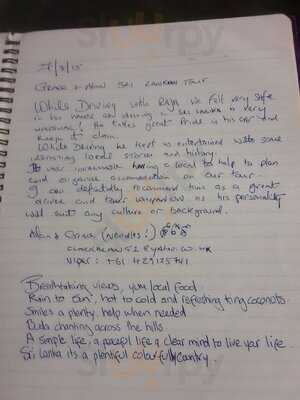 Grace & Alan Sri Lankan Tour
While Driving with Raja we felt very safe
in his hands as driving in Sri Lanka is very
He takes great pride in his car and
keeps it clean.
While Driving he kept us entertained with some
interesting local stories and history.
It was having a local to help to plan
and organise accommodation on our tour.
I can definitely recommend him as a great
driver and tour companion as his personality
will suit any culture or background.
Alan & Grace
Viper: +61
Breathtaking views, yum local food
Rain to Sun, hot to cold and refreshing king coconuts.
Smiles a plenty, help when needed
Buda chanting across the hills
A simple life, a peacful life a clear mind to live your life
Sri Lanka its a plentiful colourfull Country.